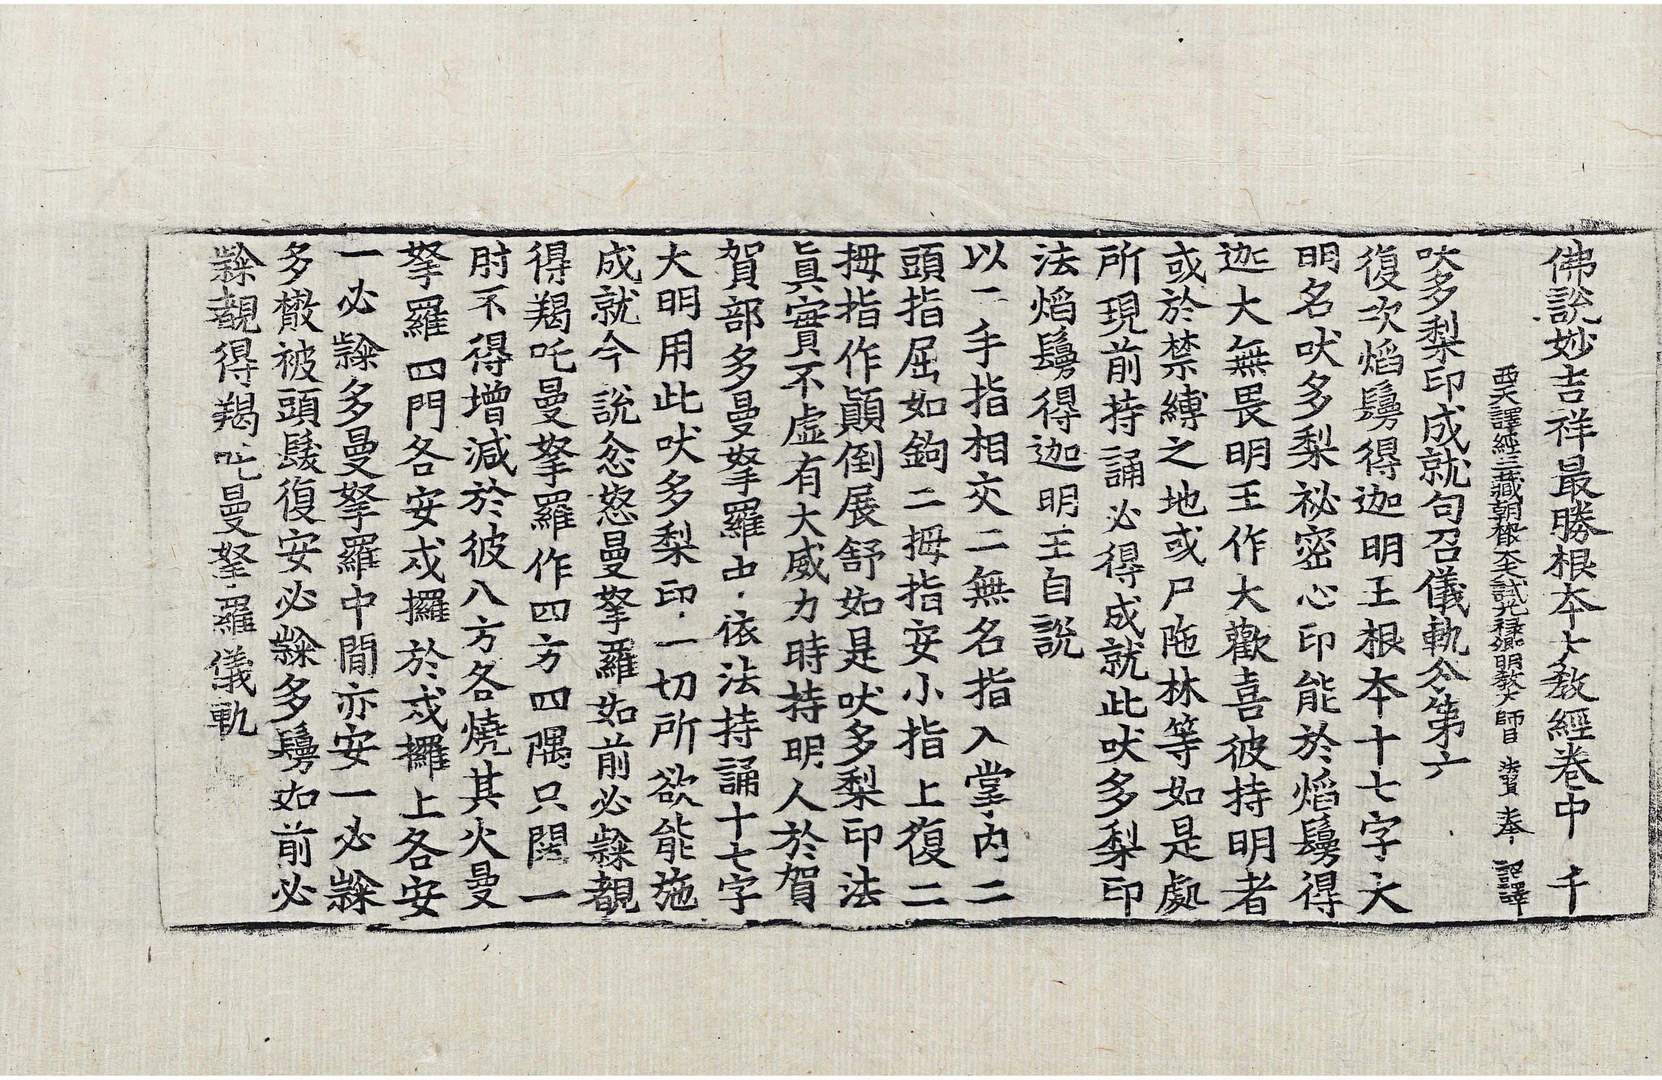 佛說妙吉祥最勝根本大教經卷中 千
西天譯經三藏朝散大夫試光祿卿明教大師臣 法賢 奉 詔譯
吠多梨印成就句召儀軌分第六
復次焰鬘得迦明王根本十七字大
明名吠多梨祕密心印能於焰鬘得
迦大無畏明王作大歡喜彼持明者
或於禁縛之地或尸陁林等如是處
所現前持誦必得成就此吠多梨印
法焰鬘得迦明王自說
以二手指相交二無名指入掌內二
頭指屈如鉤二拇指安小指上復二
拇指作顚倒展舒如是吠多梨印法
眞實不虛有大威力時持明人於賀
賀部多曼拏羅中依法持誦十七字
大明用此吠多梨印一切所欲能施
成就今說忿怒曼拏羅如前必𨽻覩
得羯吒曼拏羅作四方四隅只闊一
肘不得增減於彼八方各燒其火曼
拏羅四門各安戍攞於戍攞上各安
一必𨽻多曼拏羅中間亦安一必𨽻
多撒被頭髮復安必𨽻多鬘如前必
𨽻覩得羯吒曼拏羅儀軌